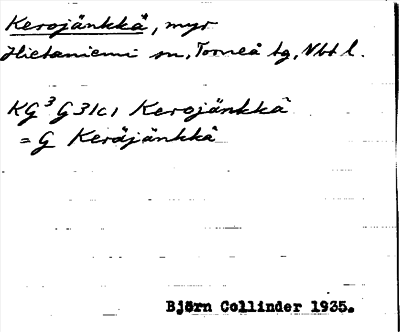 Kerojänkkä, myr
Hietaniemi sn, Torneå tg, Vbtt l.
KG³ G31c1 Kerojänkkä
= G Keräjänkkä
Björn Collinder 1935.